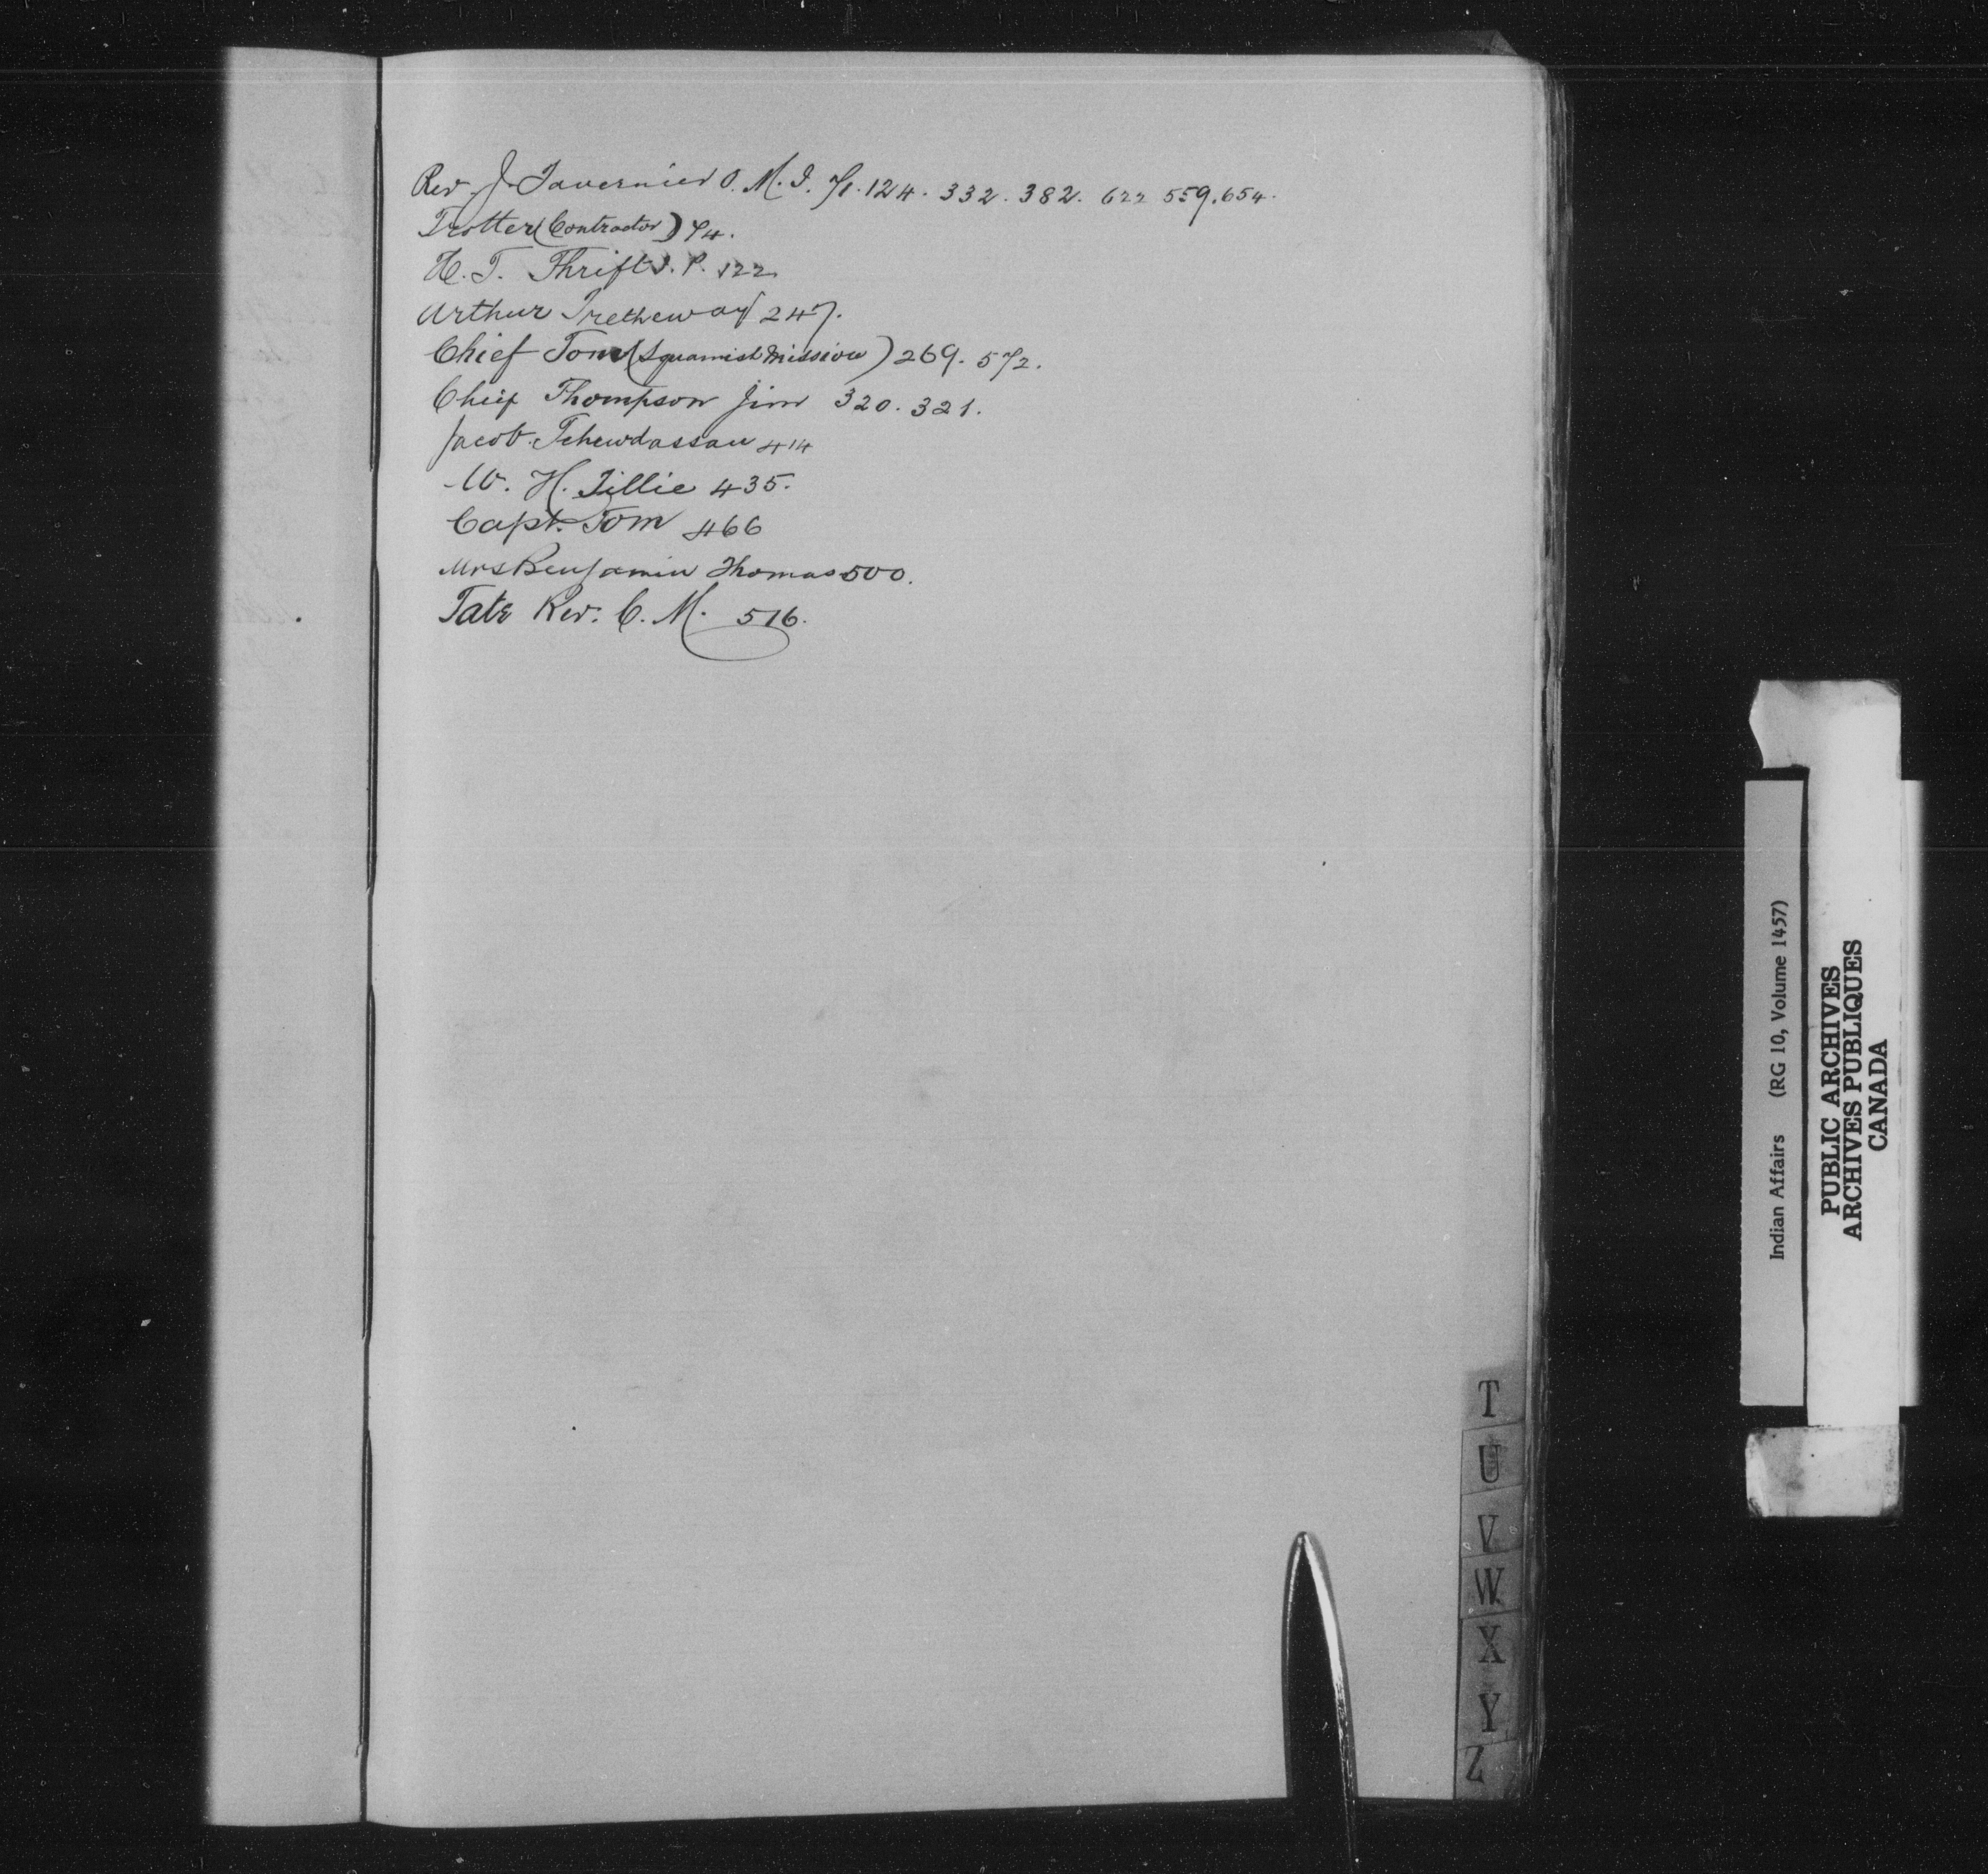 Rev. J. Tavernier O. M. I. 71. 124. 332. 382. 622 559. 654.
Trotter (Contractor) 74.
H. T. Thrift J. P. 122
Arthur Tretheway 247.
Chief Tom (Squamish Mission) 269. 572.
Chief Thompson Jim 320. 321.
Jacob Tchewdassan 414
W. H. Tillie 435.
Capt. Tom 466
Mrs Benjamin Thomas 500.
Tate Rev. C. M. 516.
T
U
V
W
X
Y
Z
Indian Affairs (RG 10, Volume 1457)
PUBLIC ARCHIVES
ARCHIVES PUBLIQUES
CANADA